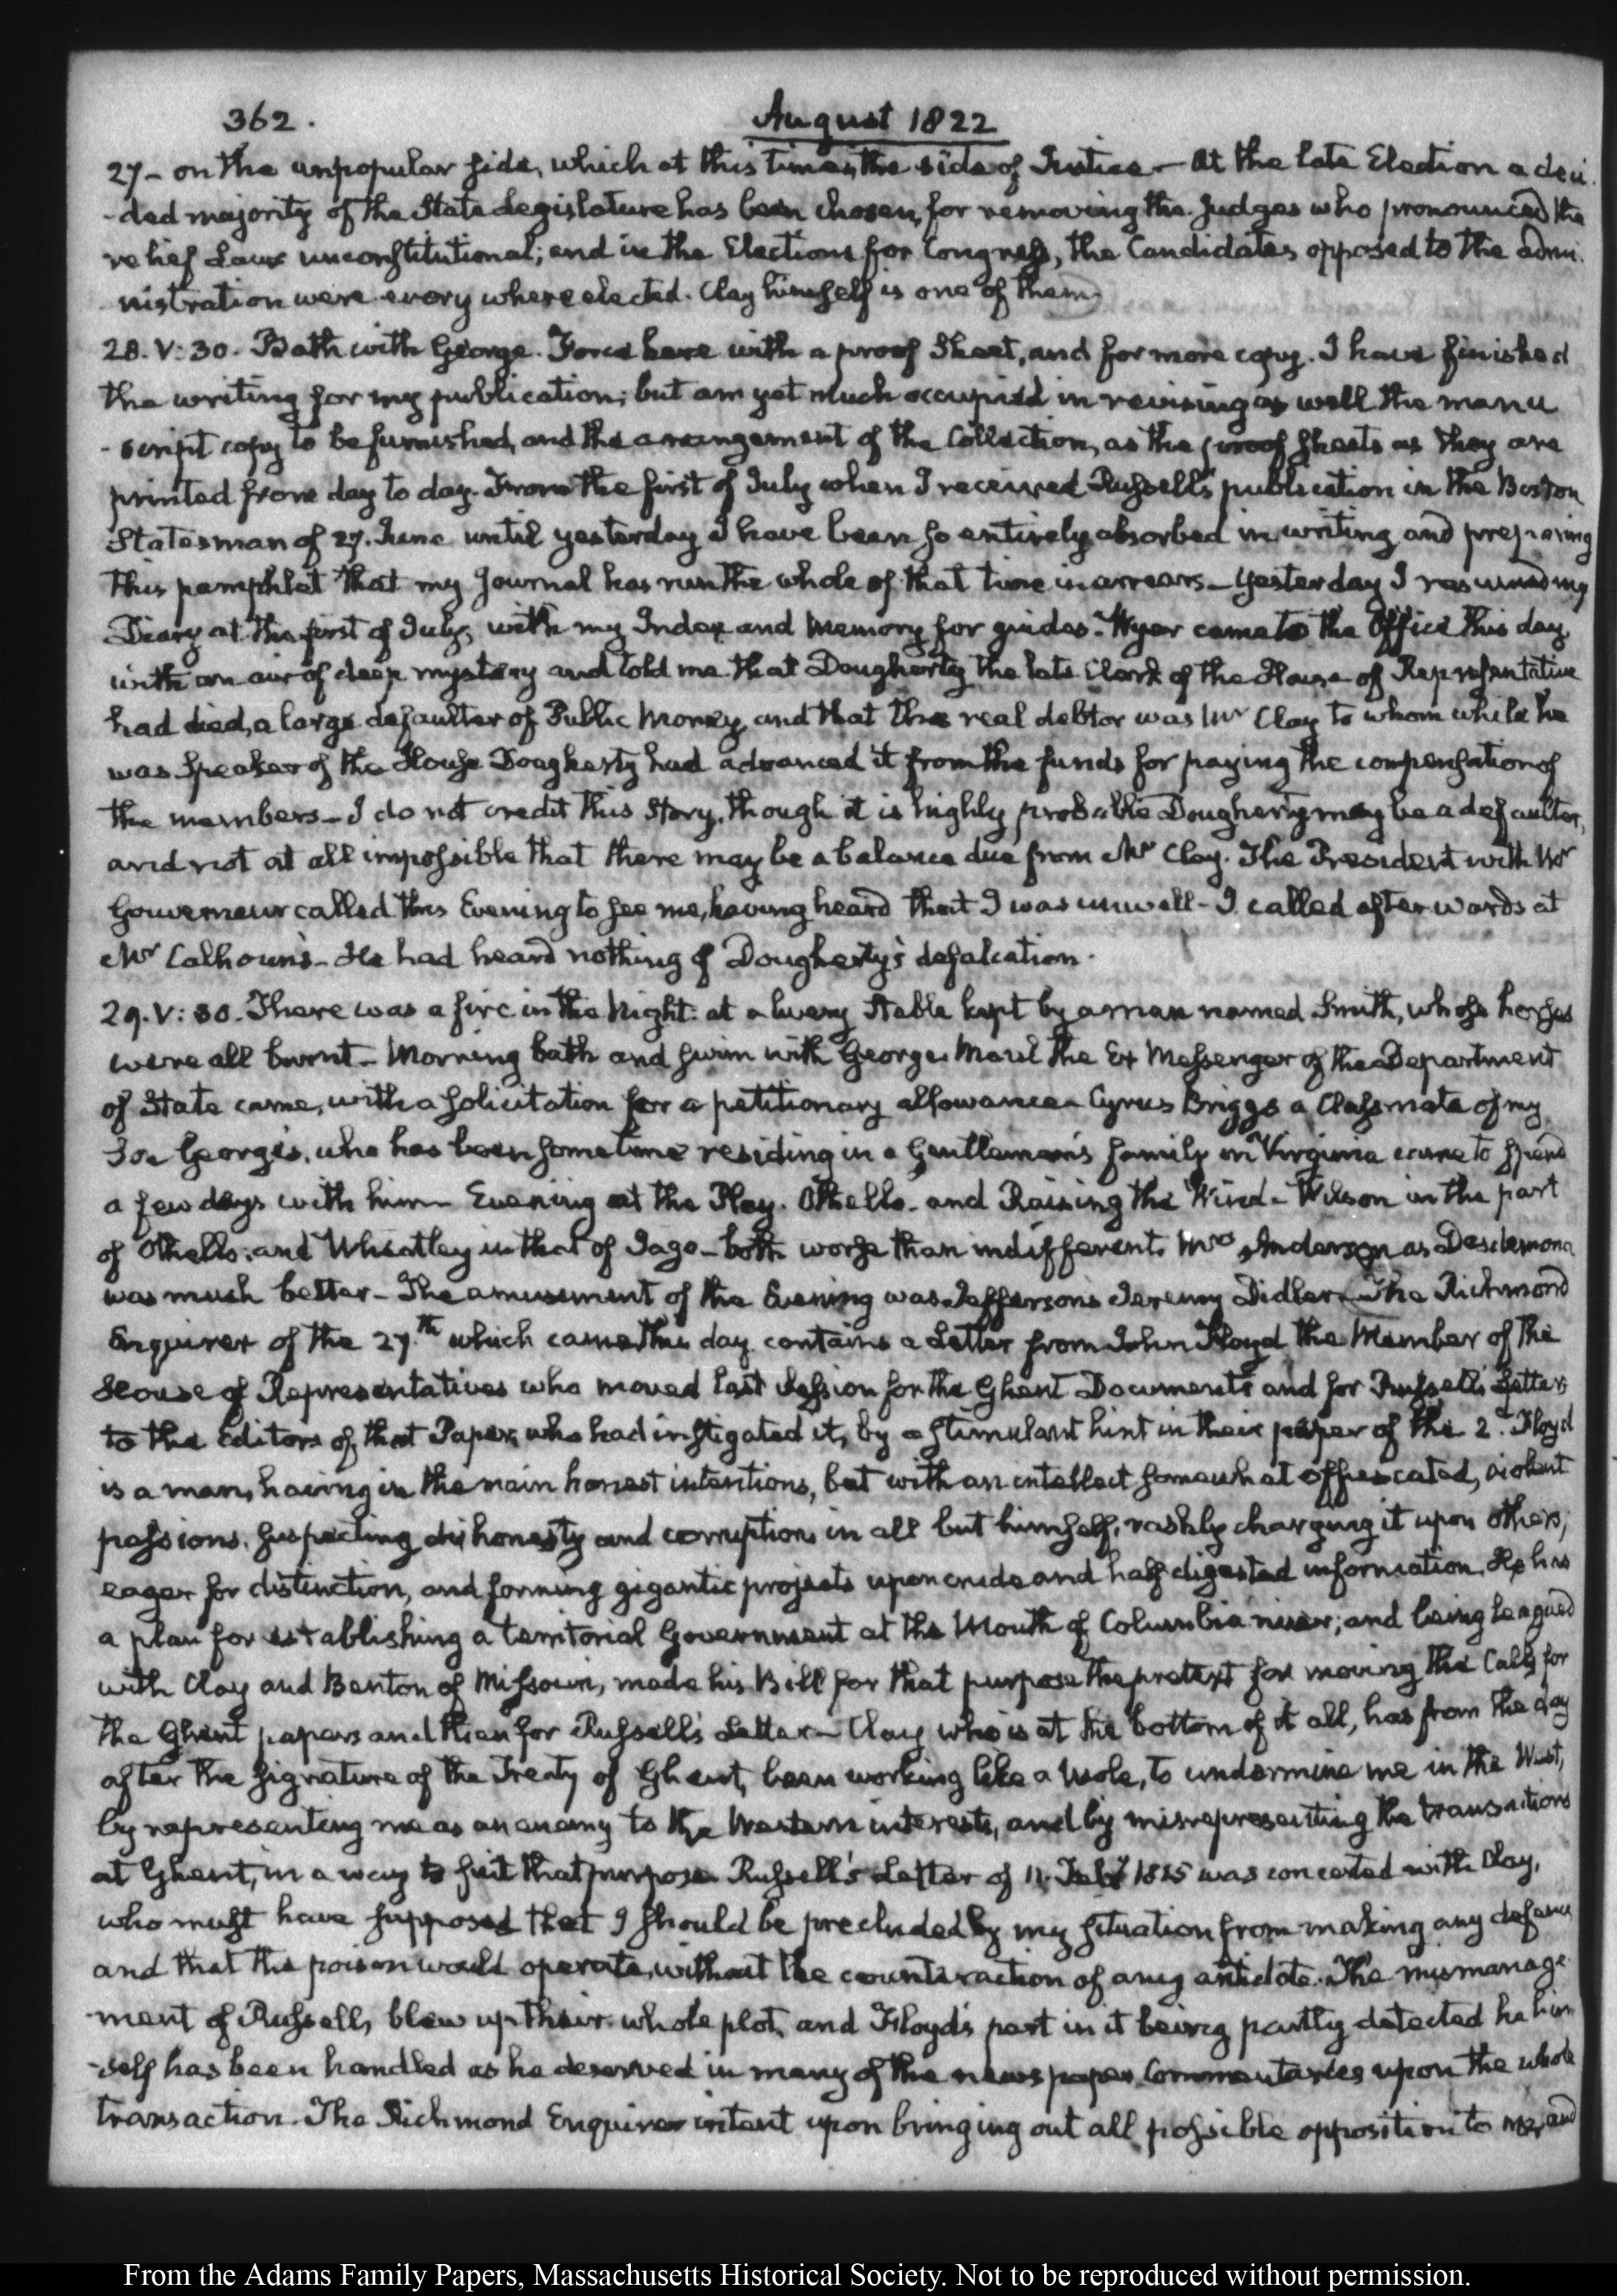 362.
August 1822
27 - on the unpopular side, which at this time is the side of Justice - At the late Election a deci
-ded majority of the State Legislature has been chosen, for removing the Judges who pronounced the
relief Laws unconstitutional; and in the Elections for Congress, the Candidates opposed to the admi
nistration were every where elected. Clay himself is one of them.
28. V: 30. Bath with George. Force here with a proof Sheet, and for more copy. I have finished
the writing for my publication; but am yet much occupied in revising as well the manu
-script copy to be furnished, and the arrangement of the Collection, as the proof sheets as they are
printed from day to day. From the first of July when I received Russell's publication in the Boston
Statesman of 27. June until yesterday I have been so entirely absorbed in writing and preparing
this pamphlet that my Journal has run the whole of that time in arrears - Yesterday I resumed my
Diary at the first of July, with my Index and Memory for guides. Wyer came to the Office this day,
with an air of deep mystery and told me that Dougherty the late Clerk of the House of Representative
had died, a large defaulter of Public Money, and that the real debtor was Mr Clay to whom while he
was Speaker of the House Dougherty had advanced it from the funds for paying the compensation of
the members - I do not credit this Story, though it is highly probable Dougherty may be a defaulter,
and not at all impossible that there may be a balance due from Mr Clay. The President with Mr
Gouverneur called this Evening to see me, having heard that I was unwell - I called afterwards at
Mr Calhoun's - He had heard nothing of Dougherty's defalcation.
29. V: 30. There was a fire in the Night at a livery Stable kept by a man named Smith, whose horses
were all burnt - Morning bath and swim with George. Maul the Ex Messenger of the Department
of State came, with a solicitation for a petitionary allowance - Cyrus Briggs a Classmate of my
Son George's, who has been sometime residing in a Gentleman's family in Virginia came to spend
a few days with him - Evening at the Play. Othello - and Raising the Wind - Wilson in the part
of Othello; and Wheatley in that of Iago - both worse than indifferent. Mrs Anderson as Desdemona
was much better - The amusement of the Evening was Jefferson's Jeremy Didler - The Richmond
Enquirer of the 27.th which came this day contains a Letter from John Floyd the Member of the
House of Representatives who moved last Session for the Ghent Documents and for Russell's Letter,
to the Editors of that Paper, who had instigated it, by a stimulant hint in their paper of the 2.d Floyd
is a man, having in the main honest intentions, but with an intellect somewhat offuscated, violent
passions, suspecting dishonesty and corruption in all but himself, rashly charging it upon others,
eager for distinction, and forming gigantic projects upon crude and half digested information. He has
a plan for establishing a territorial Government at the Mouth of Columbia river; and being leagued
with Clay and Benton of Missouri, made his Bill for that purpose the pretext for moving the Calls for
the Ghent papers and then for Russell's Letter - Clay who is at the bottom of it all, has from the day
after the signature of the Treaty of Ghent, been working like a Mole, to undermine me in the West,
by representing me as an enemy to the Western interests, and by misrepresenting the transactions
at Ghent, in a way to suit that purpose Russell's Letter of 11. Feby 1815 was concerted with Clay,
who must have supposed that I should be precluded by my situation from making any defence
and that the poison would operate, without the counteraction of any antidote. The mismanage
-ment of Russell, blew up their whole plot, and Floyd's part in it being partly detected he him
-self has been handled as he deserved in many of the newspaper Commentaries upon the whole
transaction. The Richmond Enquirer intent upon bringing out all possible opposition to me, and
From the Adams Family Papers, Massachusetts Historical Society. Not to be reproduced without permission.